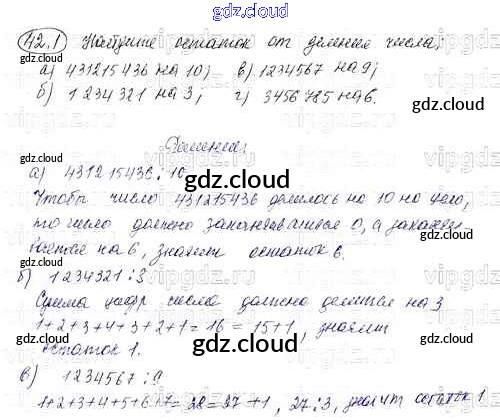 42.1 Найдите остаток от деления числа:
а) 431215436 на 10; в) 1234567 на 9;
б) 1234321 на 3; г) 3456785 на 6.
Решение:
а) 431215436 : 10
Чтобы число 431215436 делилось на 10 на цело,
то число должно заканчиваться 0, а заканчи-
вается на 6, значит остаток 6.
б) 1234321 : 3
Сумма цифр числа должна делится на 3
1+2+3+4+3+2+1=16=15+1, значит
остаток 1.
в) 1234567 : 9
1+2+3+4+5+6+7=28=27+1, 27:3, значит остаток 1
gdz.cloud
vipgdz.ru